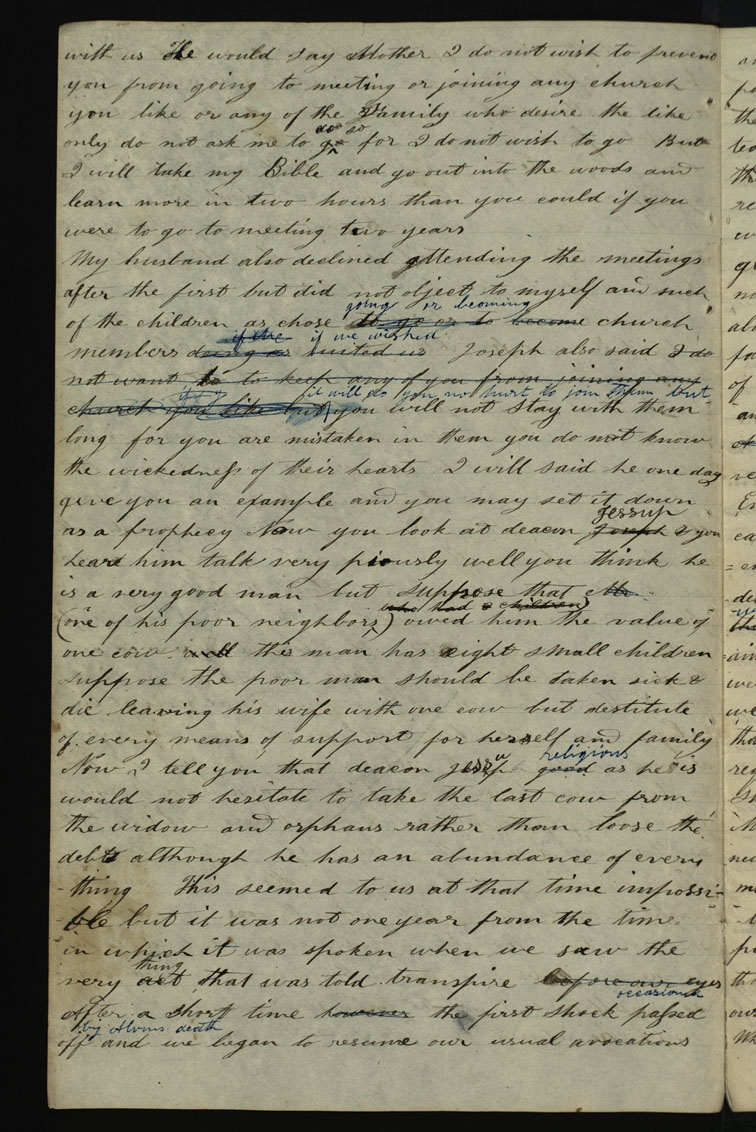 with us He would say Mother I do not wish to prevent
you from going to meeting or joining any church
you like or any of the Family who desire the like
do so
only do not ask me to go for I do not wish to go But
I will take my Bible and go out into the woods and
learn more in two hours than you could if you
were to go to meeting two years
My husband also declined attending the meetings
after the first but did not object to myself and such
going or becoming
of the children as chose to go or to become church
if the if we wished
members doing as suited us Joseph also said I do
not want to to keep any of you from joining any
it will do you no hurt to join them but
church you like but you will not stay with them
long for you are mistaken in them you do not know
the wickedness of their hearts I will said he one day
give you an example and you may set it down
Jessup
as a prophecy Now you look at deacon Joseph & you
heare him talk very piously well you think he
is a very good man but suppose that Mr.
who had 8 children
(one of his poor neighbors) owed him the value of
one cow well this man has eight small children
suppose the poor man should be taken sick &
die leaving his wife with one cow but destitute
of every means of support for herself and family
religious
Now I tell you that deacon Jessup good as he is
would not hesitate to take the last cow from
the widow and orphans rather than loose the
debt although he has an abundance of every
-thing This seemed to us at that time impossi-
-ble but it was not one year from the time
in which it was spoken when we saw the
thing
very act that was told transpire before our eyes
occasioned
After a short time however the first shock passed
by Alvins death
off and we began to resume our usual avocations